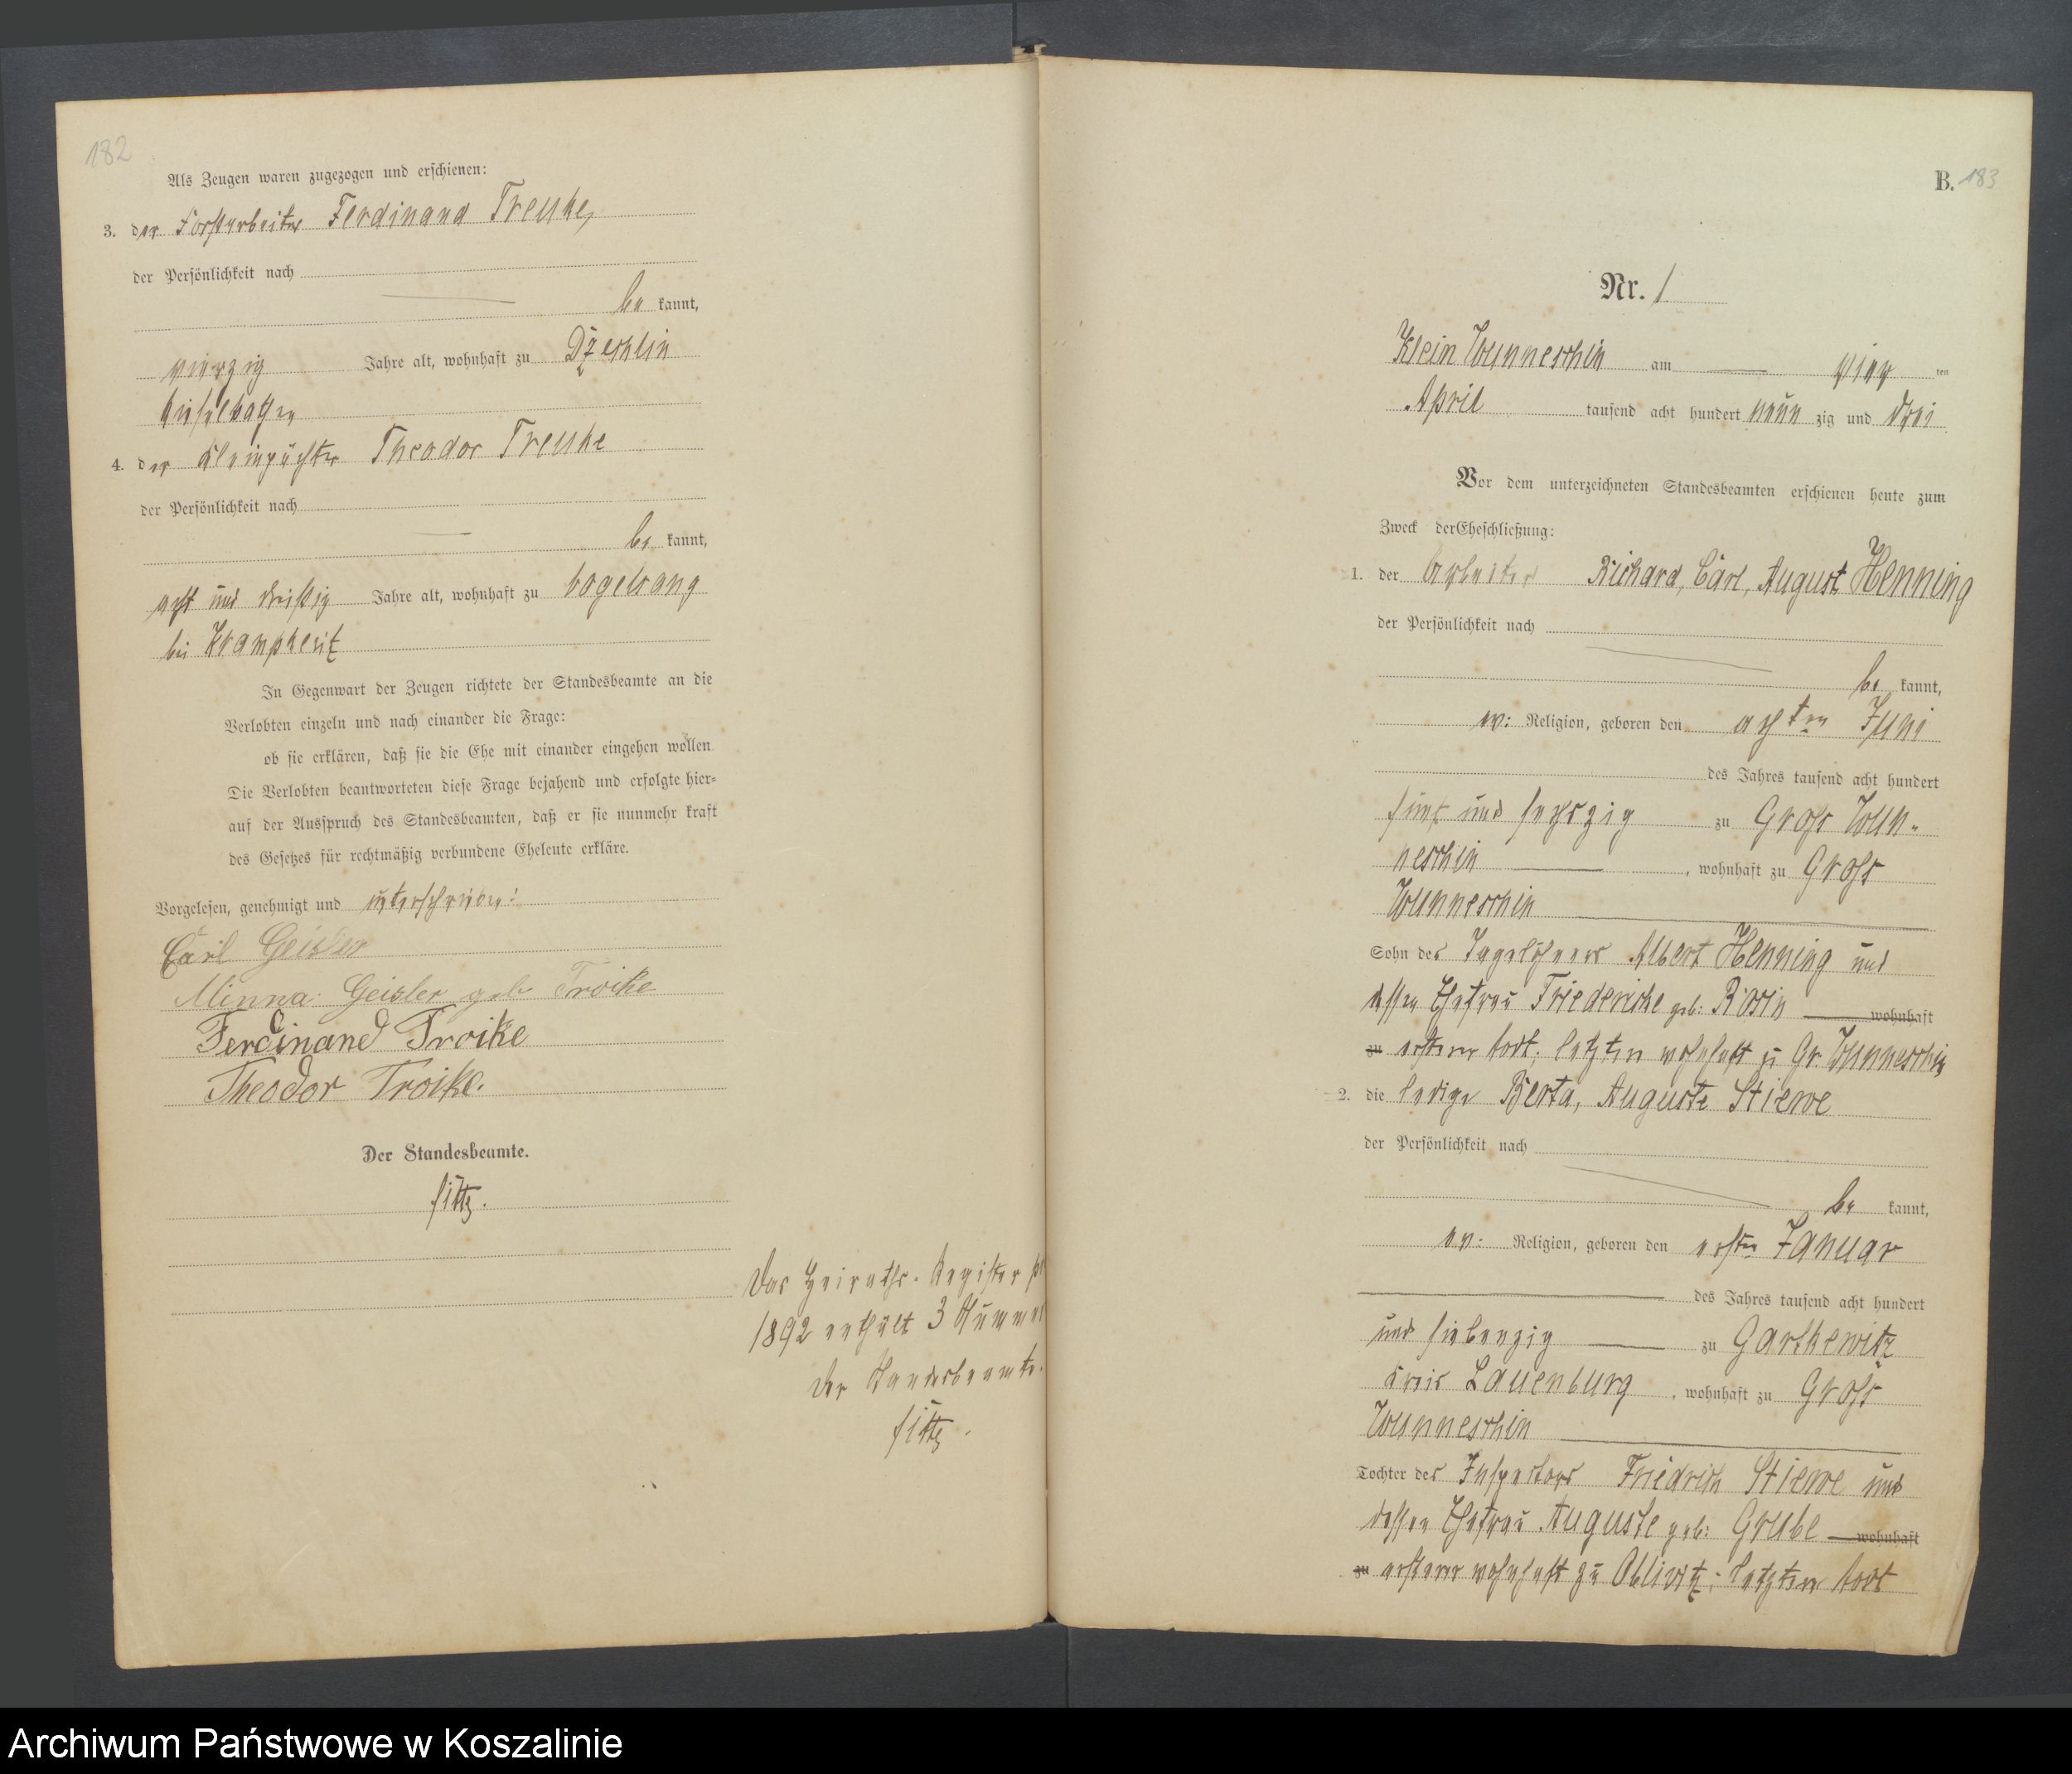 182
Als Zeugen waren zugezogen und erschienen:
3. der Forstarbeiter Ferdinand Treuke,
der Persönlichkeit nach
be kannt,
vierzig Jahre alt, wohnhaft zu Dzechlin
4. der Kleinpächter Theodor Treuke
der Persönlichkeit nach
be kannt,
acht und dreißig Jahre alt, wohnhaft zu Vogelsang
bei Krampkewitz
In Gegenwart der Zeugen richtete der Standesbeamte an die
Verlobten einzeln und nach einander die Frage:
ob sie erklären, daß sie die Ehe mit einander eingehen wollen.
Die Verlobten beantworteten diese Frage bejahend und erfolgte hier=
auf der Ausspruch des Standesbeamten, daß er sie nunmehr kraft
des Gesetzes für rechtmäßig verbundene Eheleute erkläre.
Vorgelesen, genehmigt und unterschrieben:
Carl Geisler
Minna Geisler geb Troike
Ferdinand Troike
Theodor Troike.
Der Standesbeamte.
Das Heiraths-Register
1892 enthält 3 Nummer
Der Standesbeamte.
B. 183
Nr. 1
Klein Wunneschin am vier ten
April tausend acht hundert neun zig und drei
Vor dem unterzeichneten Standesbeamten erschienen heute zum
Zweck der Eheschließung:
1. der Arbeiter Richard, Carl, August Henning
der Persönlichkeit nach
be kannt,
ev: Religion, geboren den achten Juni
des Jahres tausend acht hundert
fünf und sechszig zu Groß Wun-
neschin, wohnhaft zu Groß
Wunneschin
Sohn des Tagelöhners Albert Henning und
dessen Ehefrau Friedericke geb: Rosin wohnhaft
zu ersterer todt; letztere wohnhaft zu Gr. Wunneschin
2. die ledige Berta, Auguste Stiewe
der Persönlichkeit nach
be kannt,
ev: Religion, geboren den ersten Januar
des Jahres tausend acht hundert
und siebenzig zu Gartkewitz
Kreis Lauenburg, wohnhaft zu Groß
Wunneschin
Tochter des Inspectors Friedrich Stiewe und
dessen Ehefrau Auguste geb: Grube wohnhaft
zu ersterer wohnhaft zu Obliwitz; letztere todt
Archiwum Państwowe w Koszalinie